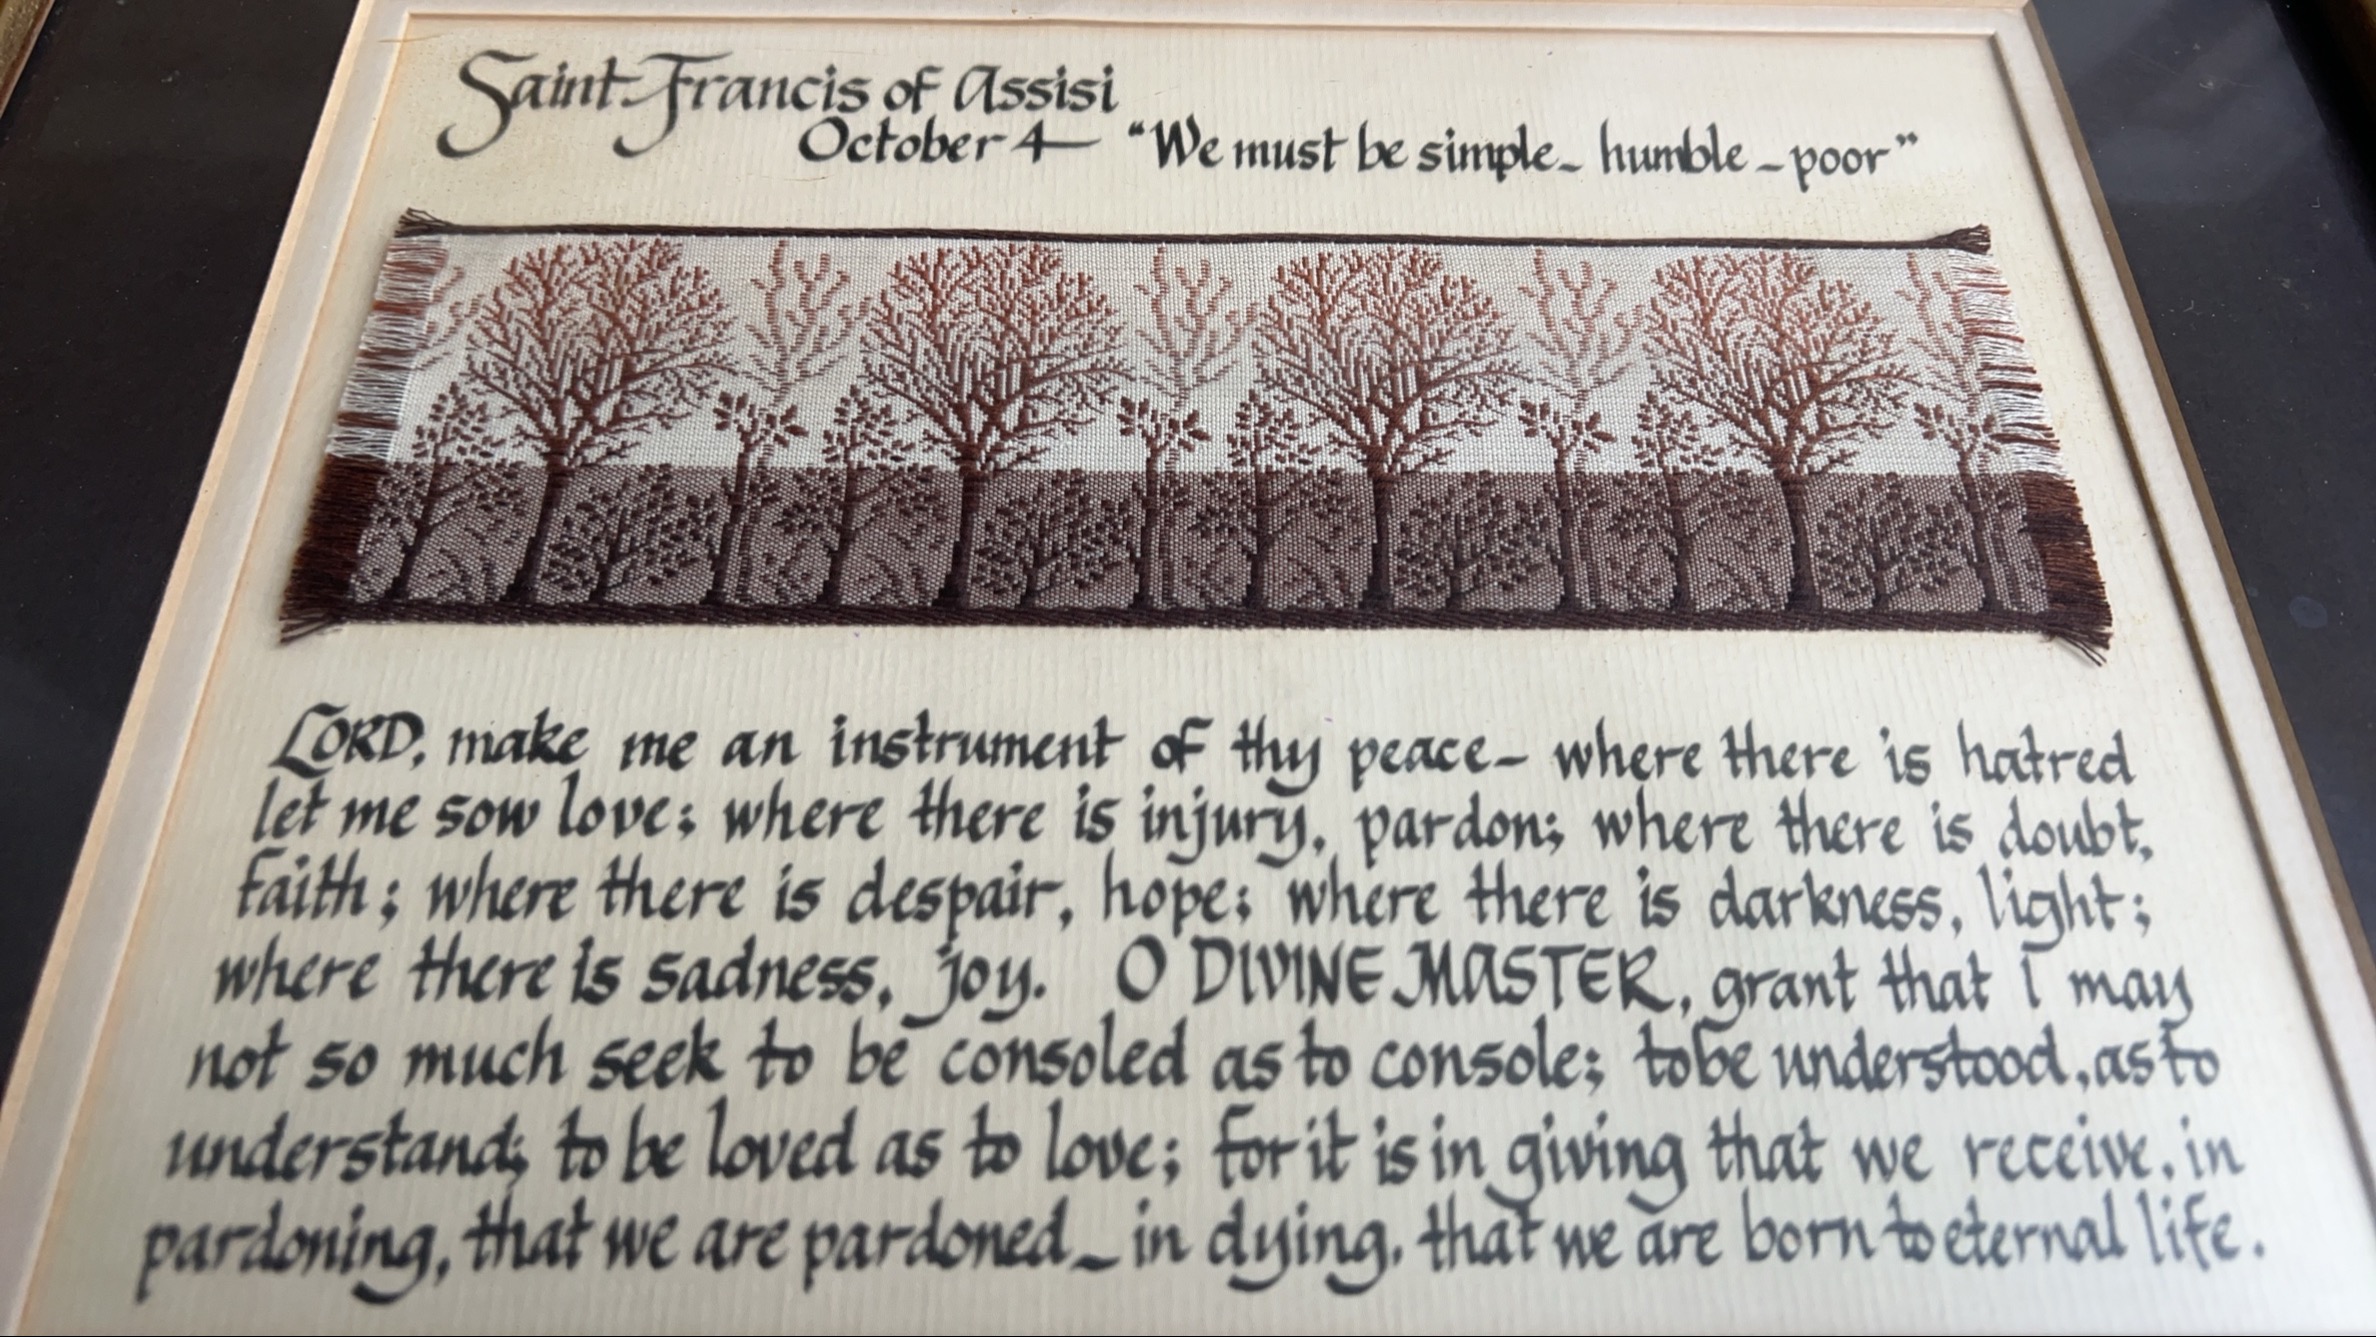 Saint Francis of Assisi
October 4 "We must be simple - humble - poor"
LORD, make me an instrument of thy peace - where there is hatred
let me sow love; where there is injury, pardon; where there is doubt,
faith; where there is despair, hope; where there is darkness, light;
where there is sadness, joy. O DIVINE MASTER, grant that I may
not so much seek to be consoled as to console; to be understood, as to
understand; to be loved as to love; for it is in giving that we receive, in
pardoning, that we are pardoned - in dying, that we are born to eternal life.